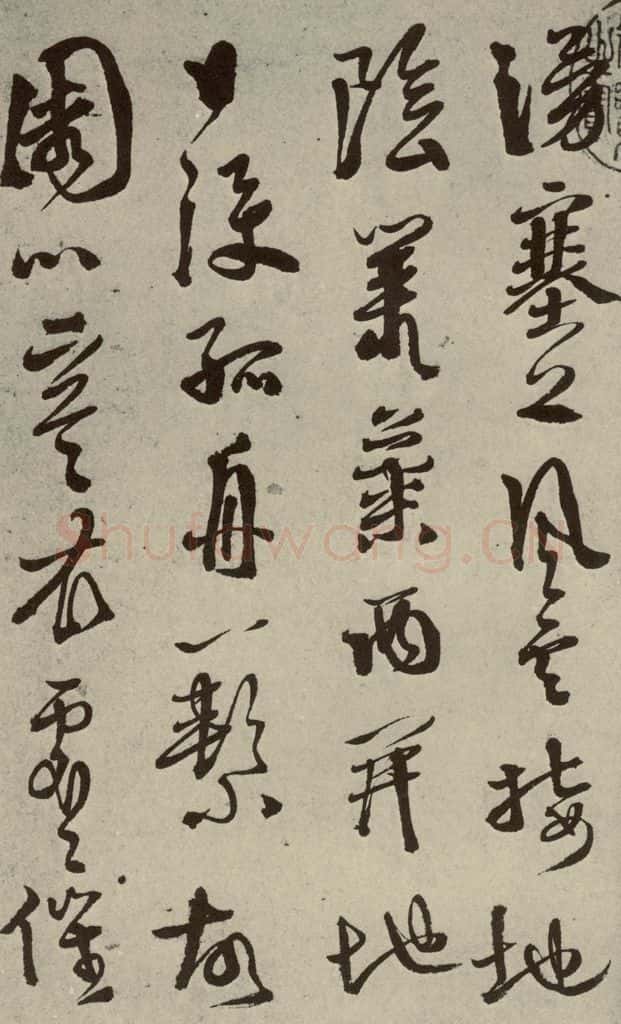 湧塞上風雲接地
陰叢菊兩開他
日淚孤舟一繫故
園心寒衣處處催
Shufawang.CN